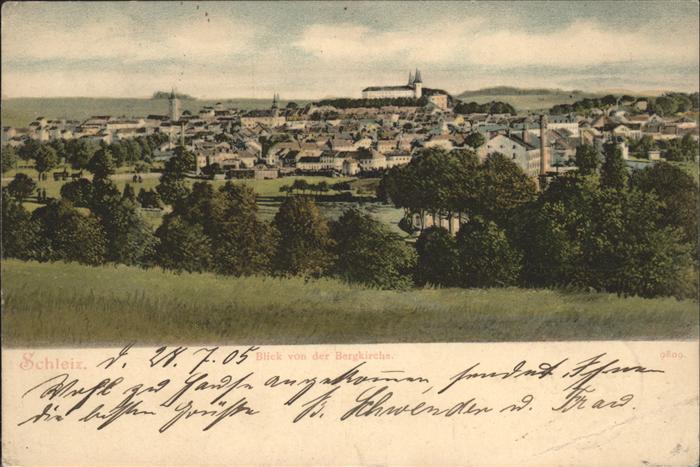 Schleiz. d. 28.7.05 Blick von der Bergkirche. 9809.
Wohl zu Hause angekom̄en, sendet Ihnen
die besten Grüße B. Schwender u. Frau.